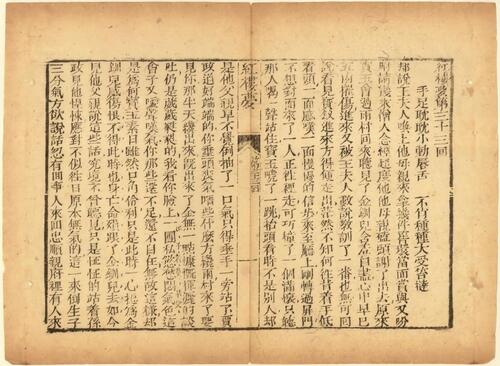 紅樓夢第三十三回
手足耽耽小動唇舌　不肖種種大受笞撻
却說王夫人喚上他母親來拿幾件簪環當面賞與又吩
咐請幾衆僧人念經超度他他母親磕頭謝了出去原來
寶玉會過雨村回來聽見了金釧兒含羞自盡心中早已
五內摧傷進來又被王夫人數說教訓了一番也無可回
說看見寶釵進來方得便走出茫然不知何往背着手低
着頭一面感嘆一面慢慢的信步來至廳上剛轉過屏門
不想對面來了一人正往裡走可巧撞了個滿懷只聽
那人喝一聲站住寶玉唬了一跳抬頭看時不是別人却
紅樓夢
是他父親早不覺倒抽了一口氣只得垂手一旁站了賈
政道好端端的你垂頭喪氣嗐些什麼方纔雨村來了要
見你那半天纔出來旣出來了全無一點慷慨揮灑的談
吐仍是葳葳蕤蕤的我看你臉上一團私慾愁悶氣色這
會子又噯聲嘆氣你那些還不足還不自在無故這樣却
是爲何寶玉素日雖然口角伶俐只是此時一心摠爲金
釧兒感傷恨不得此時也身亡命殞跟了金釧兒去如今
見他父親說這些話究竟不曾聽見只是怔怔的站着賈
政見他惶悚應對不似往日原本無氣的這一來倒生了
三分氣方欲說話忽有回事人來回忠順親王府裡有人來